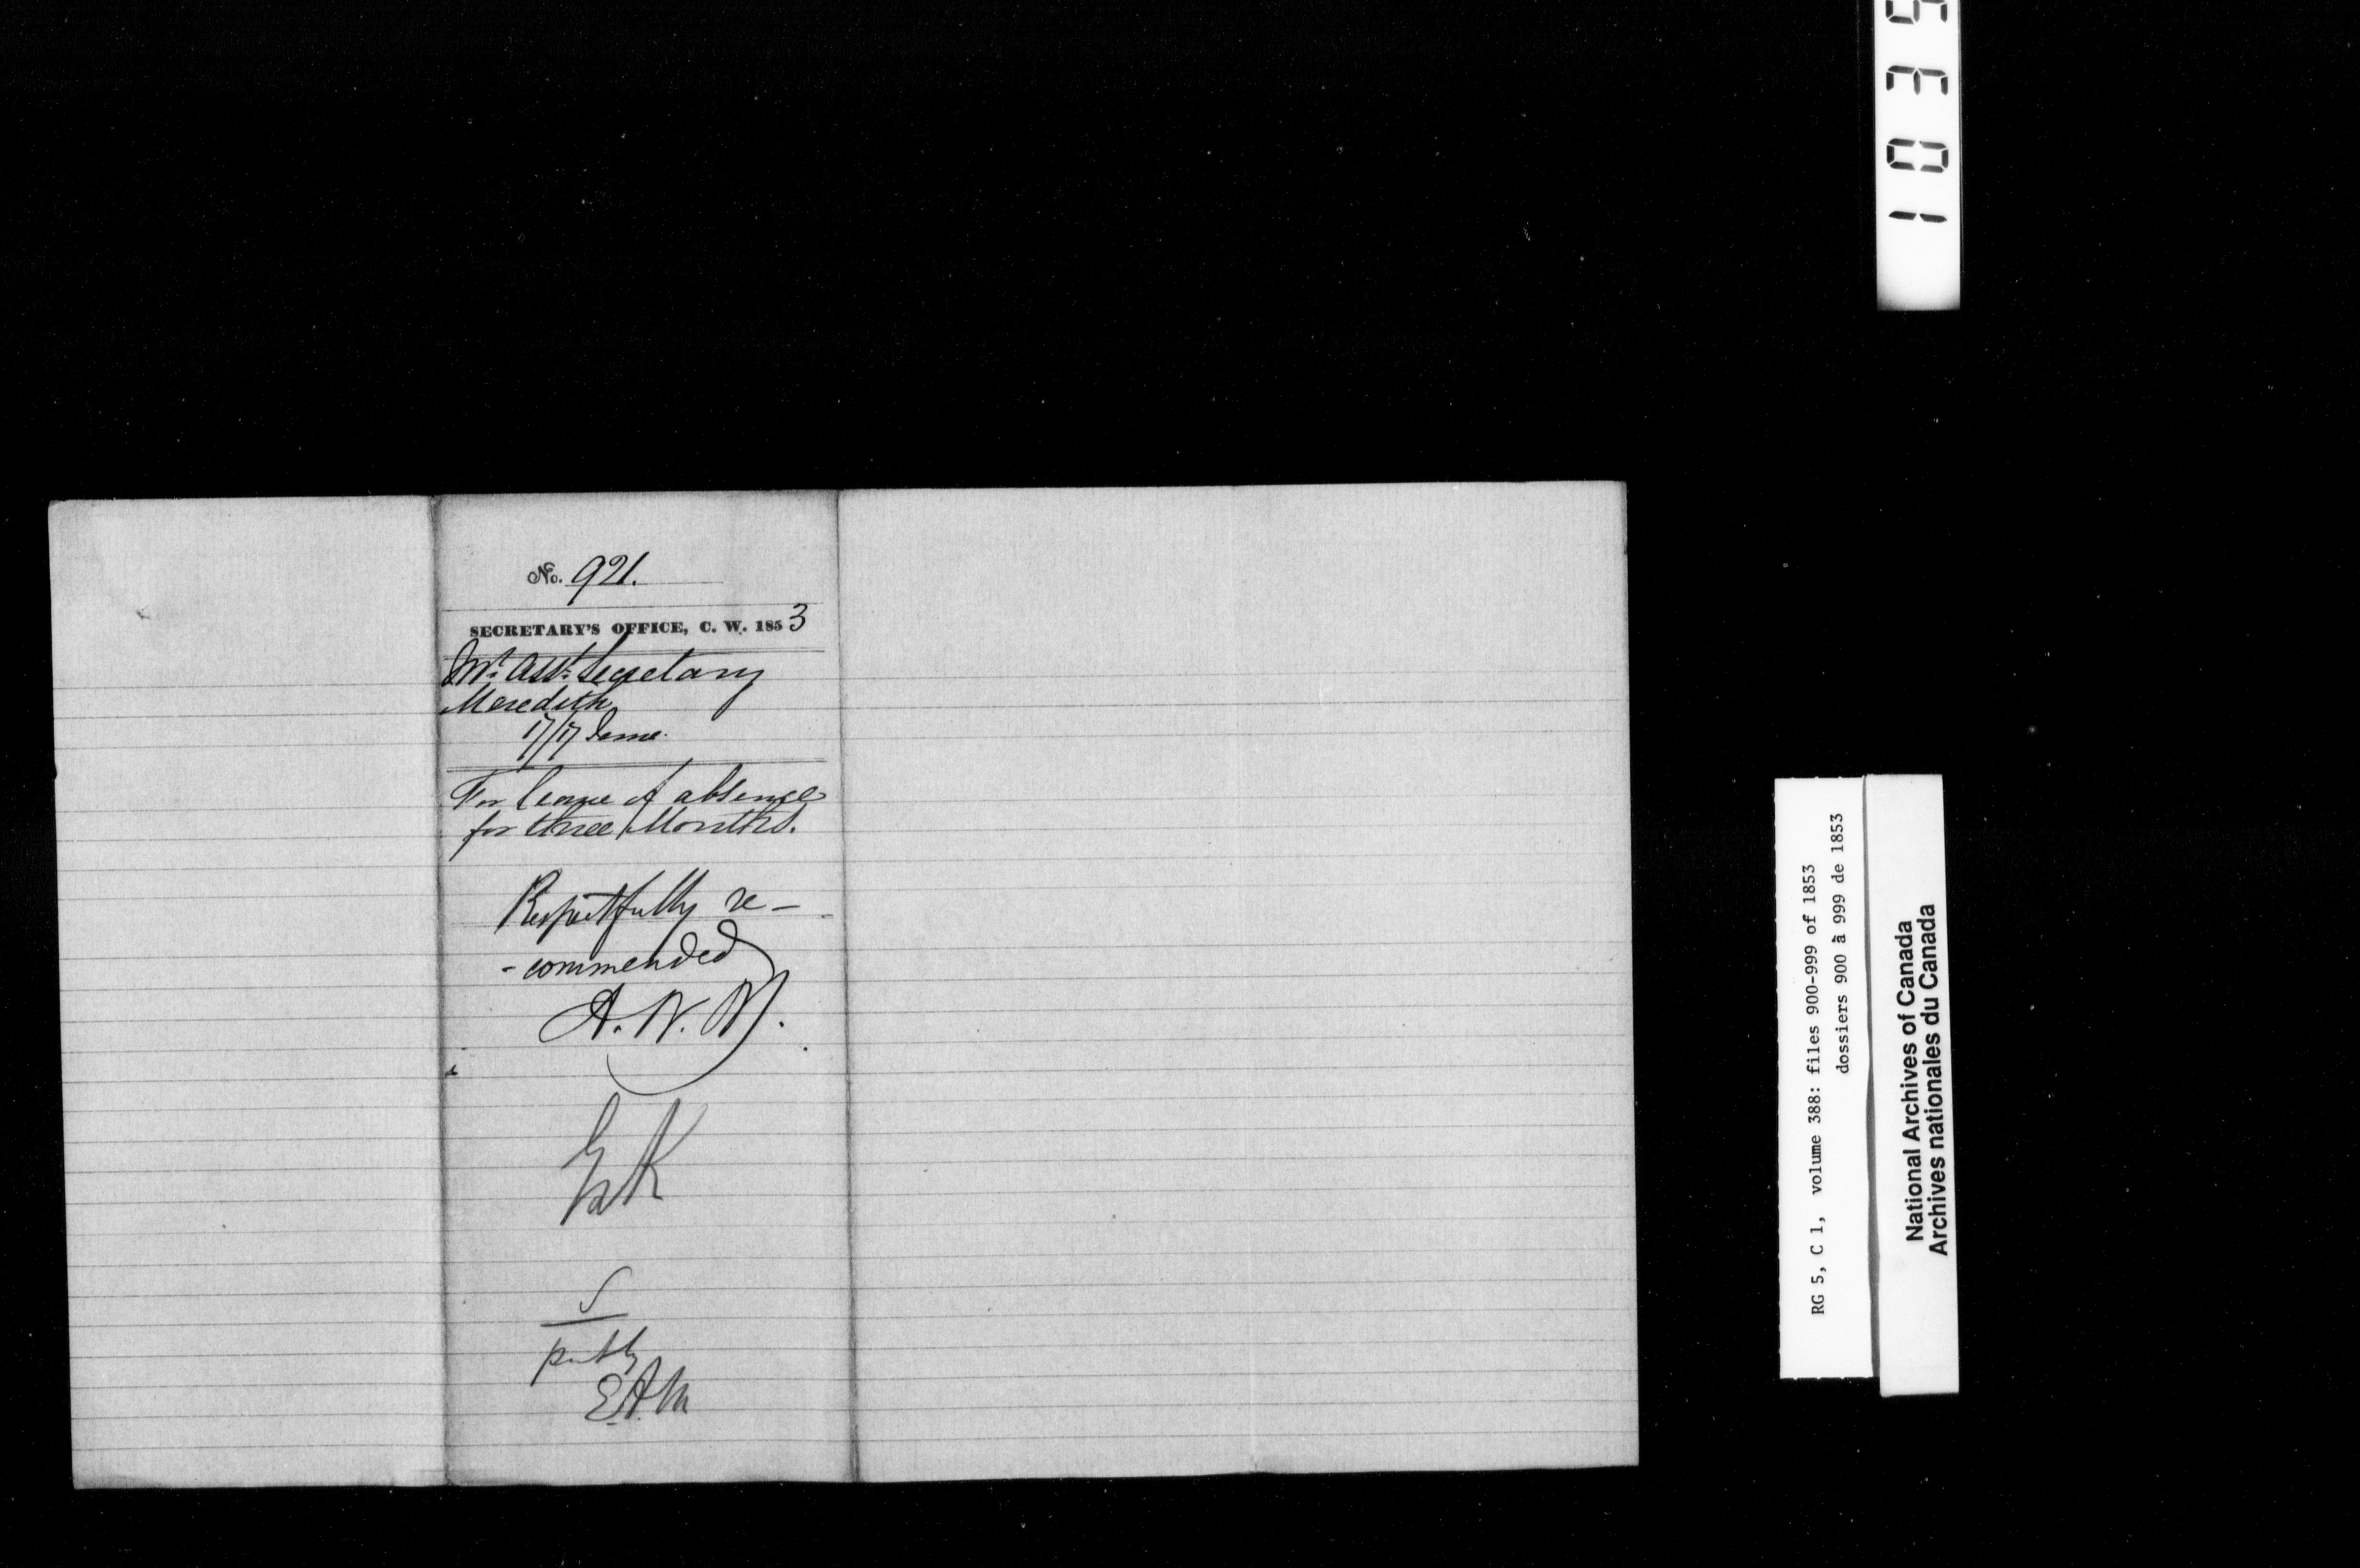 No. 921.
SECRETARY'S OFFICE, C. W. 1853
Mr. Asst. Secretary
Meredith
17/17 June.
For leave of absence
for three Months.
Respectfully re-
-commended
A. N. M.
EAM
1039
RG 5, C 1, volume 388: files 900-999 of 1853
dossiers 900 à 999 de 1853
National Archives of Canada
Archives nationales du Canada